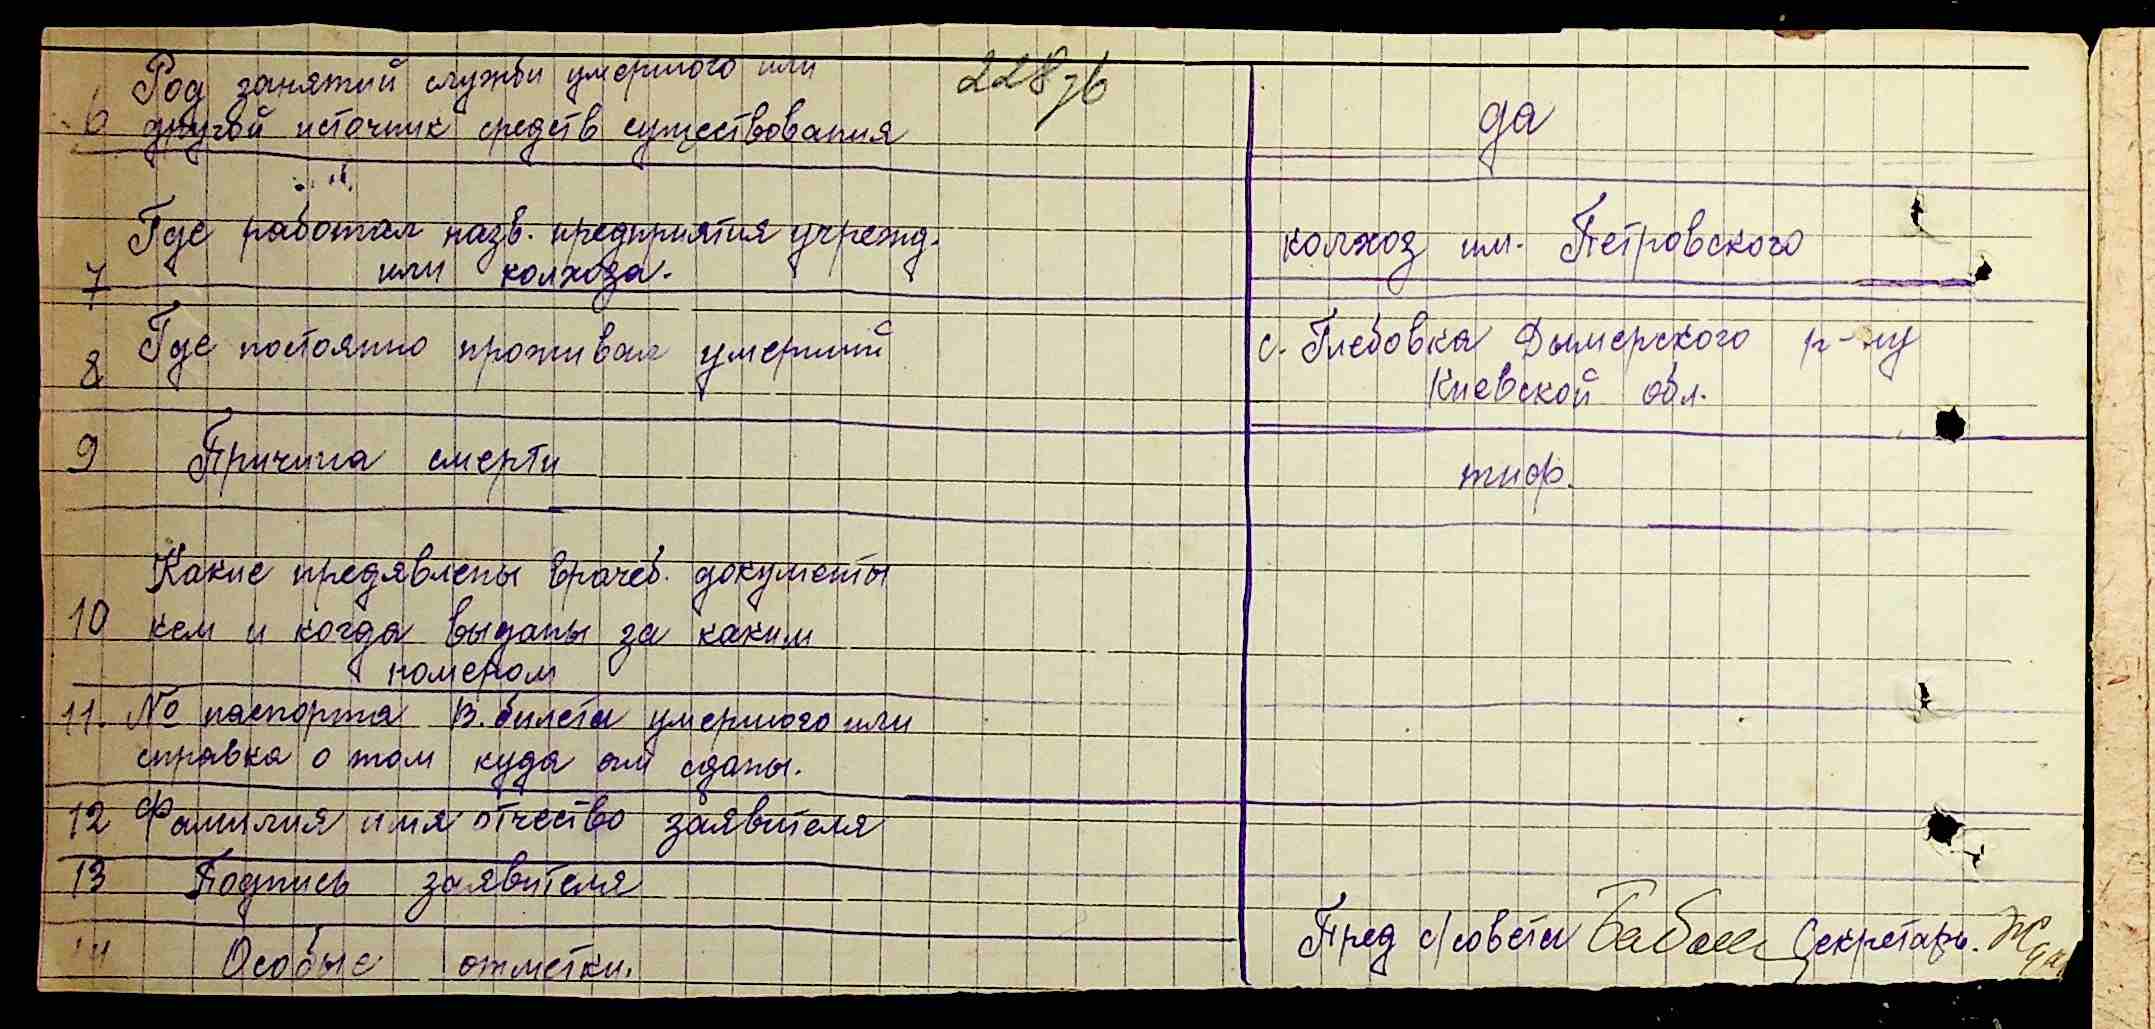 Род занятий службы умершого или
228зв
6 другой источник средств существования
да
Где работал назв. предприятия учрежд.
7 или колхоза.
колхоз им. Петровского
8 Где постоянно проживал умерший
с. Глебовка Дымерского р-ну
Киевской обл.
9 Причина смерти
тиф.
Какие предявлены врачеб. документы
10 кем и когда выданы за каким
номером
11. № паспорта В. билета умершого или
справка о том куда они сданы.
12 Фамилия имя отчество заявителя
13 Подпись заявителя
14 Особые отметки.
Пред с/совета Бабенко Секретарь.